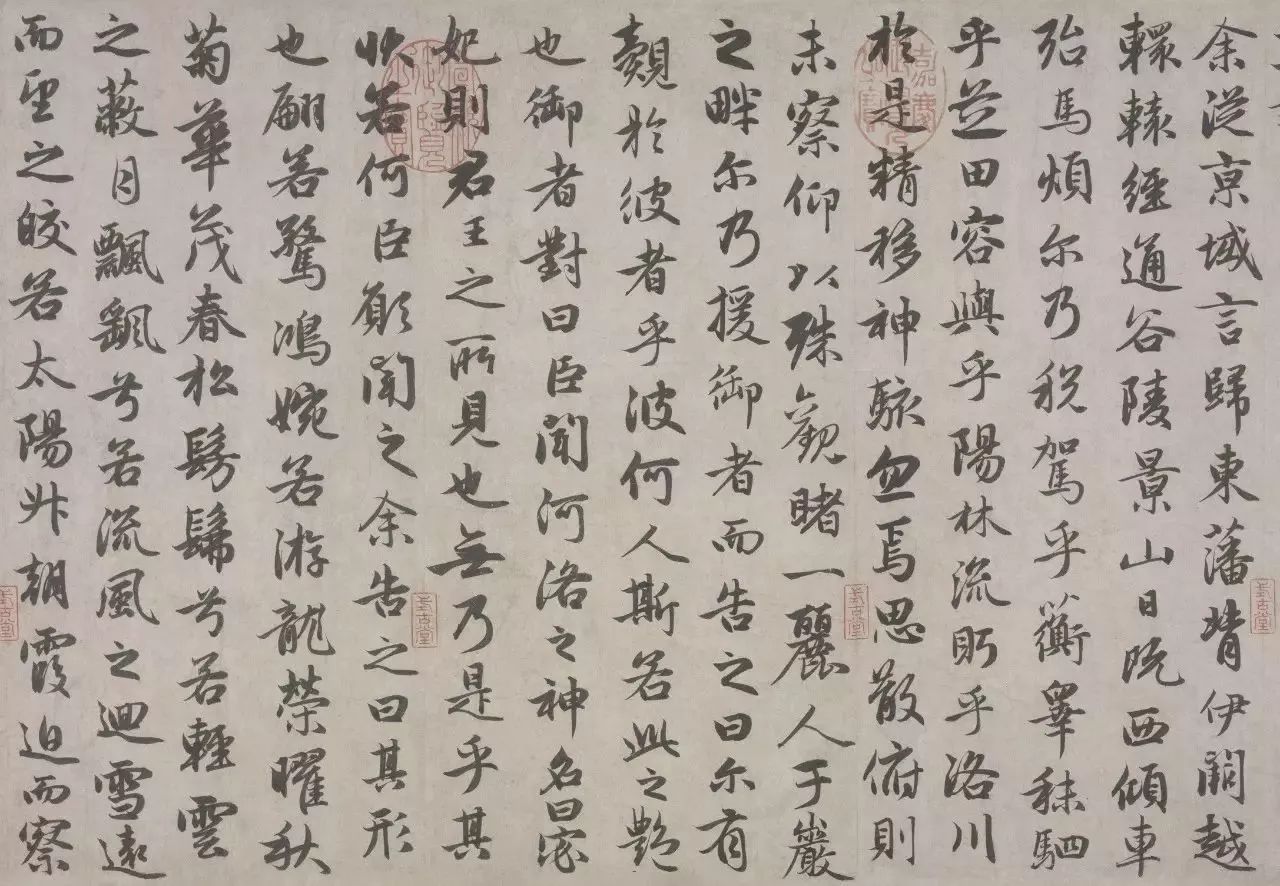 余從京域言歸東藩背伊闕越
轘轅經通谷陵景山日既西傾車
殆馬煩尔乃税駕乎蘅皋秣駟
乎芝田容與乎陽林流眄乎洛川
於是精移神駭忽焉思散俯則
未察仰以殊觀睹一麗人于巖
之畔尔乃援御者而告之曰尔有
覿於彼者乎彼何人斯若此之艷
也御者對曰臣聞河洛之神名曰宓
妃則君王之所見也無乃是乎其
狀若何臣願聞之余告之曰其形
也翩若驚鴻婉若游龍榮曜秋
菊華茂春松髣髴兮若輕雲
之蔽月飄颻兮若流風之迴雪遠
而望之皎若太陽升朝霞迫而察